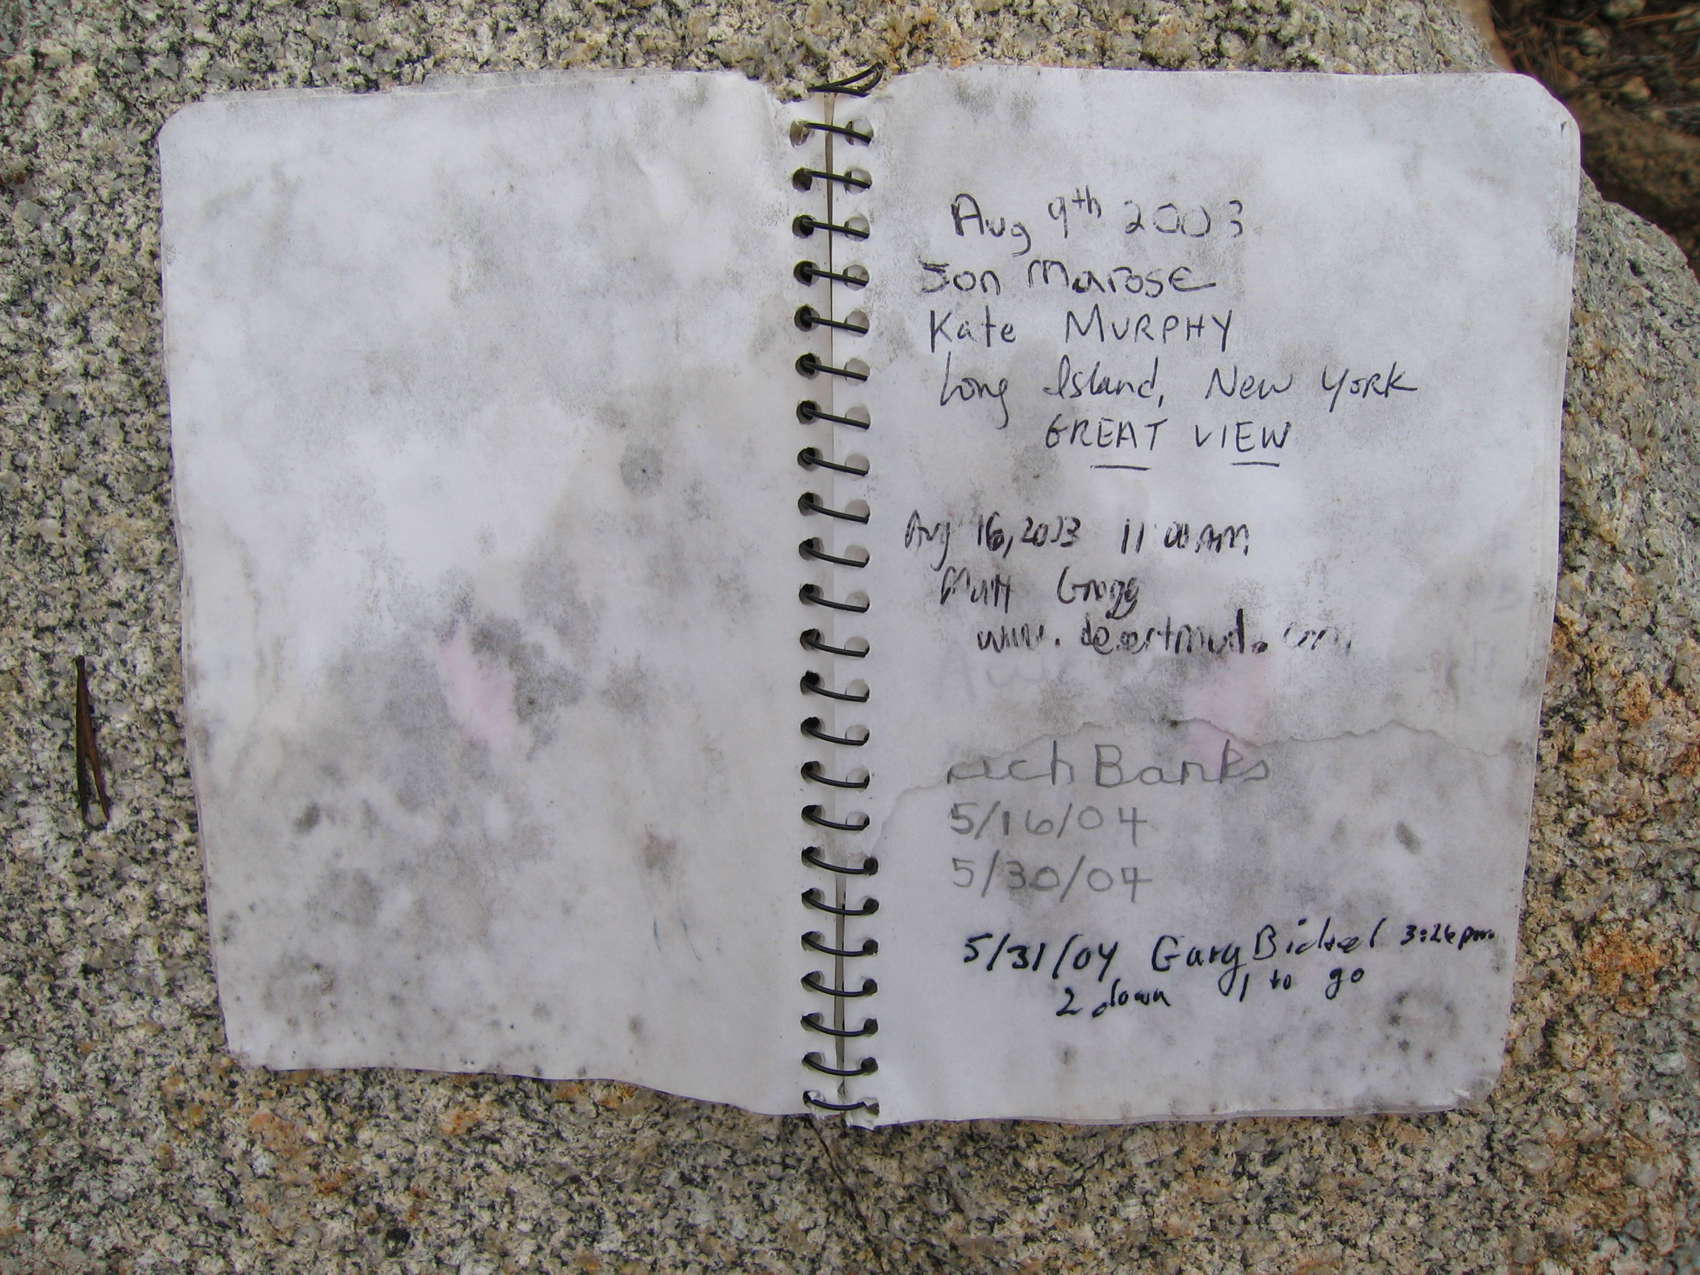 Aug 9th 2003
Jon Marose
Kate MURPHY
Long Island, New York
GREAT VIEW
Aug 16, 2003 11:00 AM
Matt Gregg
www.desertmud.com
Rich Banks
5/16/04
5/30/04
5/31/04 Gary Bickel 3:26 pm
2 down 1 to go